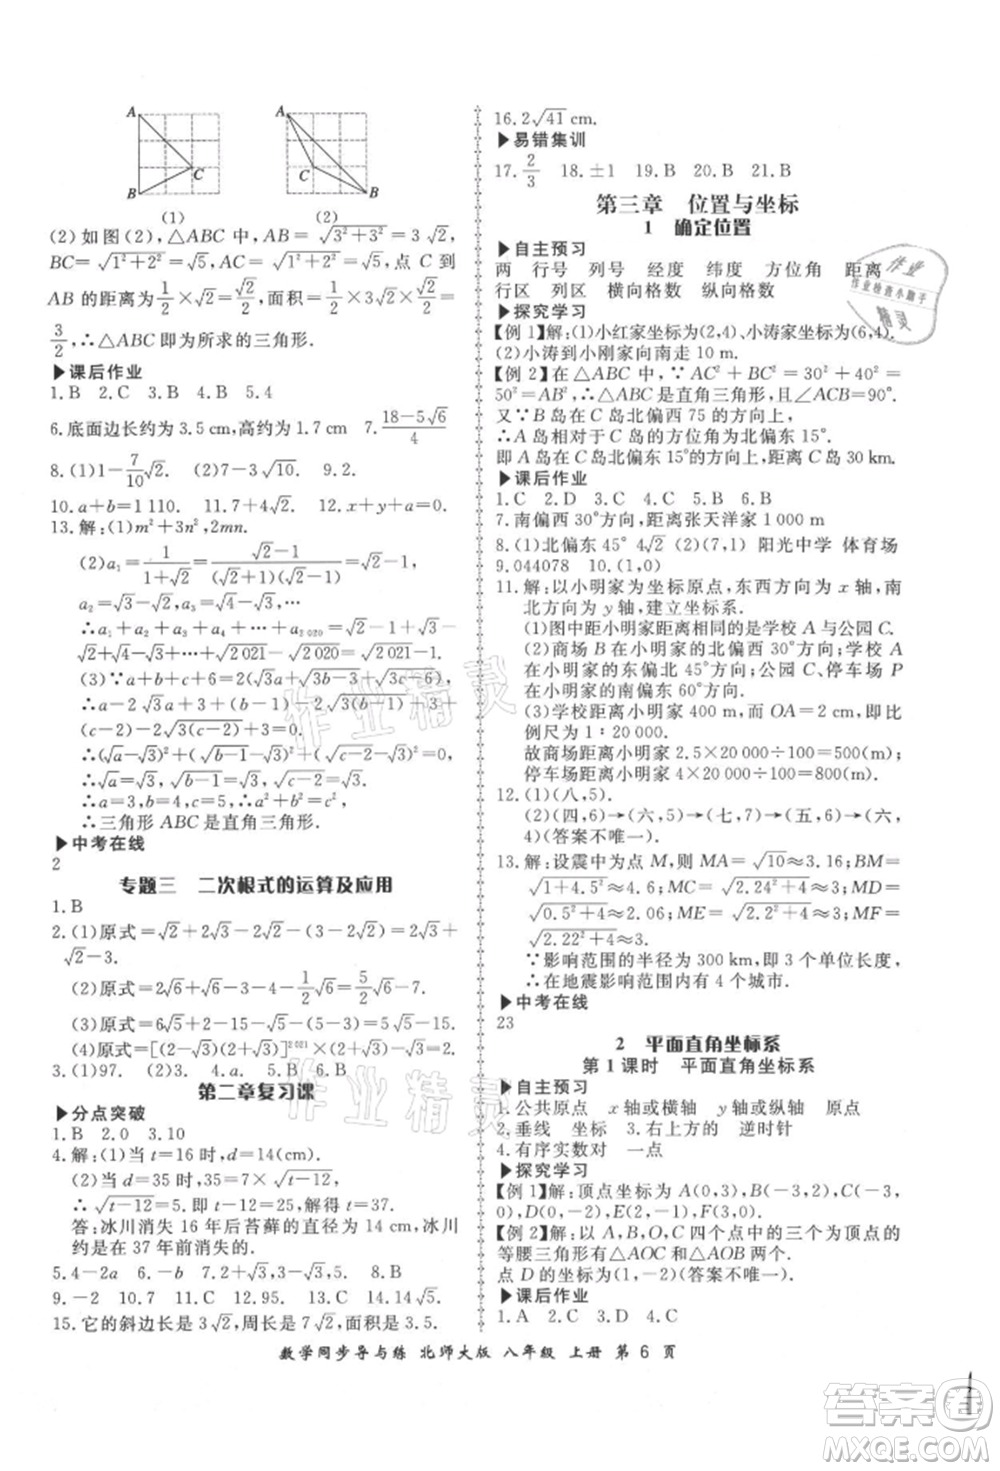 A
B
C
(1)
A
C
B
(2)
(2)如图(2),△ABC 中,AB=√(3²+3²)=3√2,
BC=√(1²+2²)=√5,AC=√(1²+2²)=√5,点 C 到
AB 的距离为√(1²+1²)/2=√2/2,面积=1/2×3√2×√2/2=
3/2,∴△ABC 即为所求的三角形.
▶课后作业
1.B 2.C 3.B 4.B 5.4
6.底面边长约为 3.5 cm,高约为 1.7 cm 7.(18-5√6)/4
8.(1)1-7/10√2 (2)9-6√2. 9.2.
10.a+b=1 110. 11.a+b=4. 12.0.
13.解:(1)m²+3n²,2mn.
(2)a₁=1/(1+√2)=(√2-1)/((√2+1)(√2-1))=√2-1,
a₂=√3-√2,a₃=√4-√3,…
∴a₁+a₂+a₃+…+a₂₀₂₀=√2-1+√3-√2+√4
-√3+…+√2021-√2020=√2021-1.
(3)∵a+b+c+6=2(√a+√3(b-3)+√3(c-6)),
∴a-2√3a+3+(b-1)-2√3(b-1)+3+
(c-2)-2√3(c-2)+3=0.
∴(√a-√3)²+(√(b-1)-√3)²+(√(c-2)-√3)²=0.
∴√a=√3,√(b-1)=√3,√(c-2)=√3.
∴a=3,b=4,c=5,∴a²+b²=c².
∴三角形 ABC 是直角三角形.
▶中考在线
2
专题三 二次根式的运算及应用
1.B
2.(1)原式=√2+2√3-2-(3√3-2√2)=3√2-
√3-2.
(2)原式=2+√6-9+1/2√6=3/2√6-7.
(3)原式=6√5-2√5-3√5=√5.
(4)原式=[(√3-2)(√3+2)]²⁰²¹=(-1)²⁰²¹=-1.
3.(1)C (2)97. 4.D 5.B 6.B
第二章复习课
▶分点突破
1.B 2.0 3.10
4.解:(1)当 t=16 时,d=7×√(16-12)=14(cm).
(2)当 d=35 时,35=7×√(t-12),
∴√(t-12)=5,即 t-12=25,解得 t=37.
答:冰川消失 16 年后苔藓的直径为 14 cm,冰川
约是在 37 年前消失的.
5.4-2a 6.- 7.2+√3 8.B
9.-2 10.7 11.√3 12.95. 13.6 14.B
15.它的斜边长是 3√2,面积是 3.5.
16.2√41 cm.
▶易错集训
17.2/3 18.±1 19.B 20.B 21.B
第三章 位置与坐标
1 确定位置
▶自主预习
两 行号 列号 经度 纬度 方位角 距离
行区 列区 横向格数 纵向格数
▶探究学习
【例 1】解:(1)小红家坐标为(2,4),小涛家坐标为(6,4).
(2)小涛到小刚家向南走 10 m.
【例 2】在△ABC 中,∵AC²+BC²=30²+40²=
50²=AB²,∴△ABC 是直角三角形,且∠ACB=90°.
又∵B 岛在 C 岛北偏西 75 的方向上,
∴A 岛相对于 C 岛的方位角为北偏东 15°.
即 A 岛在 C 岛北偏东 15°方向上,距离 C 岛 30 km.
▶课后作业
1.C 2.D 3.C 4.C 5.A 6.C
7.南偏西 30°方向,距离张天洋家 1 000 m
8.(1)北偏东 45° 4√2 (2)(7,1) 阳光中学 体育场
9.044078 10.(1,0)
11.解:以小明家为坐标原点,东西方向为 x 轴,南
北方向为 y 轴,建立坐标系.
(1)图中距小明家距离相同的是学校 A 与公园 C.
(2)商场在小明家的北偏西 30°方向;学校 A
在小明家的东偏北 45°方向;公园 C,停车场 P
在小明家的南偏东 60°方向.
(3)学校距离小明家 400 m,而 OA=2 cm,故比
例尺为 1∶20 000.
故商场距离小明家 2.5×20 000÷100=500(m);
停车场距离小明家 4×20 000÷100=800(m).
12.(1)(八,5).
(2)(四,6)→(六,5)→(四,4)→(五,6)→(六,
4)(答案不唯一).
13.解:设震中为点 M,则 MA=√10≈3.2,BM=
√(0.1²+4)≈2,MC=√(1.6²+4)≈2.56,MD=
√(0.5²+4)≈2.06,ME=√(3²+4)≈3.61,MF=
√(2.22²+4)≈3.
∵影响范围的半径为 300 km,即 3 个单位长度,
∴在地震影响范围内有 4 个城市.
▶中考在线
23
2 平面直角坐标系
第 1 课时 平面直角坐标系
▶自主预习
1.公共原点 x 轴或横轴 y 轴或纵轴 原点
2.垂线 坐标 3.右上方的 逆时针
4.有序实数对 一点
▶探究学习
【例 1】解:顶点坐标为 A(0,3),B(-3,2),C(-4,
0),D(0,-2),E(1,-1),F(3,1).
【例 2】解:以 A,B,C 四个点中的三个为顶点的
等腰三角形有△AOC 和△ABC 两个.
点 D 的坐标为(1,-2)(答案不唯一).
▶课后作业
1.A 2.C 3.D 4.D
数学同步导与练 北师大版 八年级 上册 第 6 页
作业
作业检查小助手
精灵
作业精灵
作业精灵
答案圈
MXQE.COM